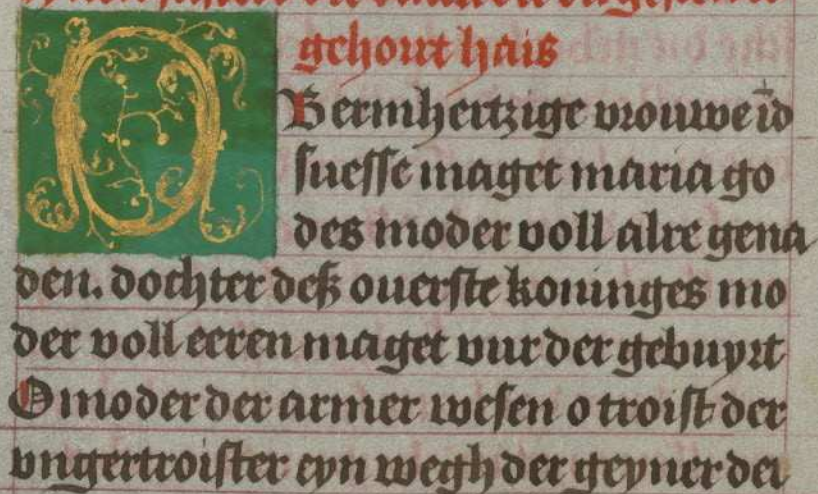 gehourt hais
O Bermhertzige vrouwe id
suesse maget maria go
des moder voll alre gena
den. dochter deß ouerste koninges mo
der voll eeren maget vur der gebuyrt
O moder der armer wesen o troist der
vngertroister eyn wegh der geyner der